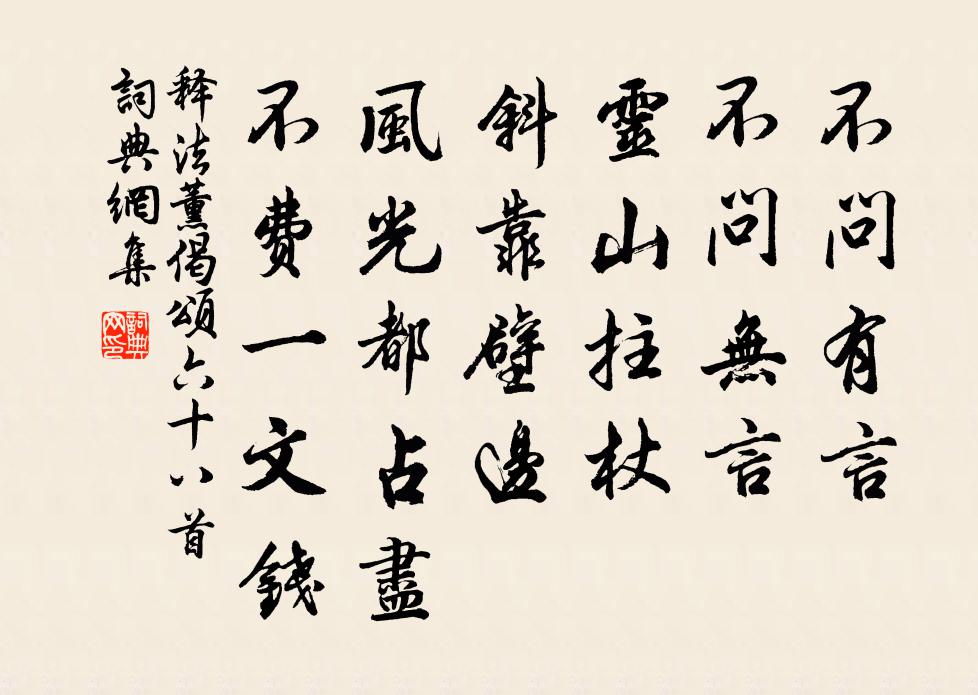 不問有言
不問無言
靈山拄杖
斜靠壁邊
風光都占盡
不费一文錢
释法薰偈頌六十八首
詞典網集
詞典网印